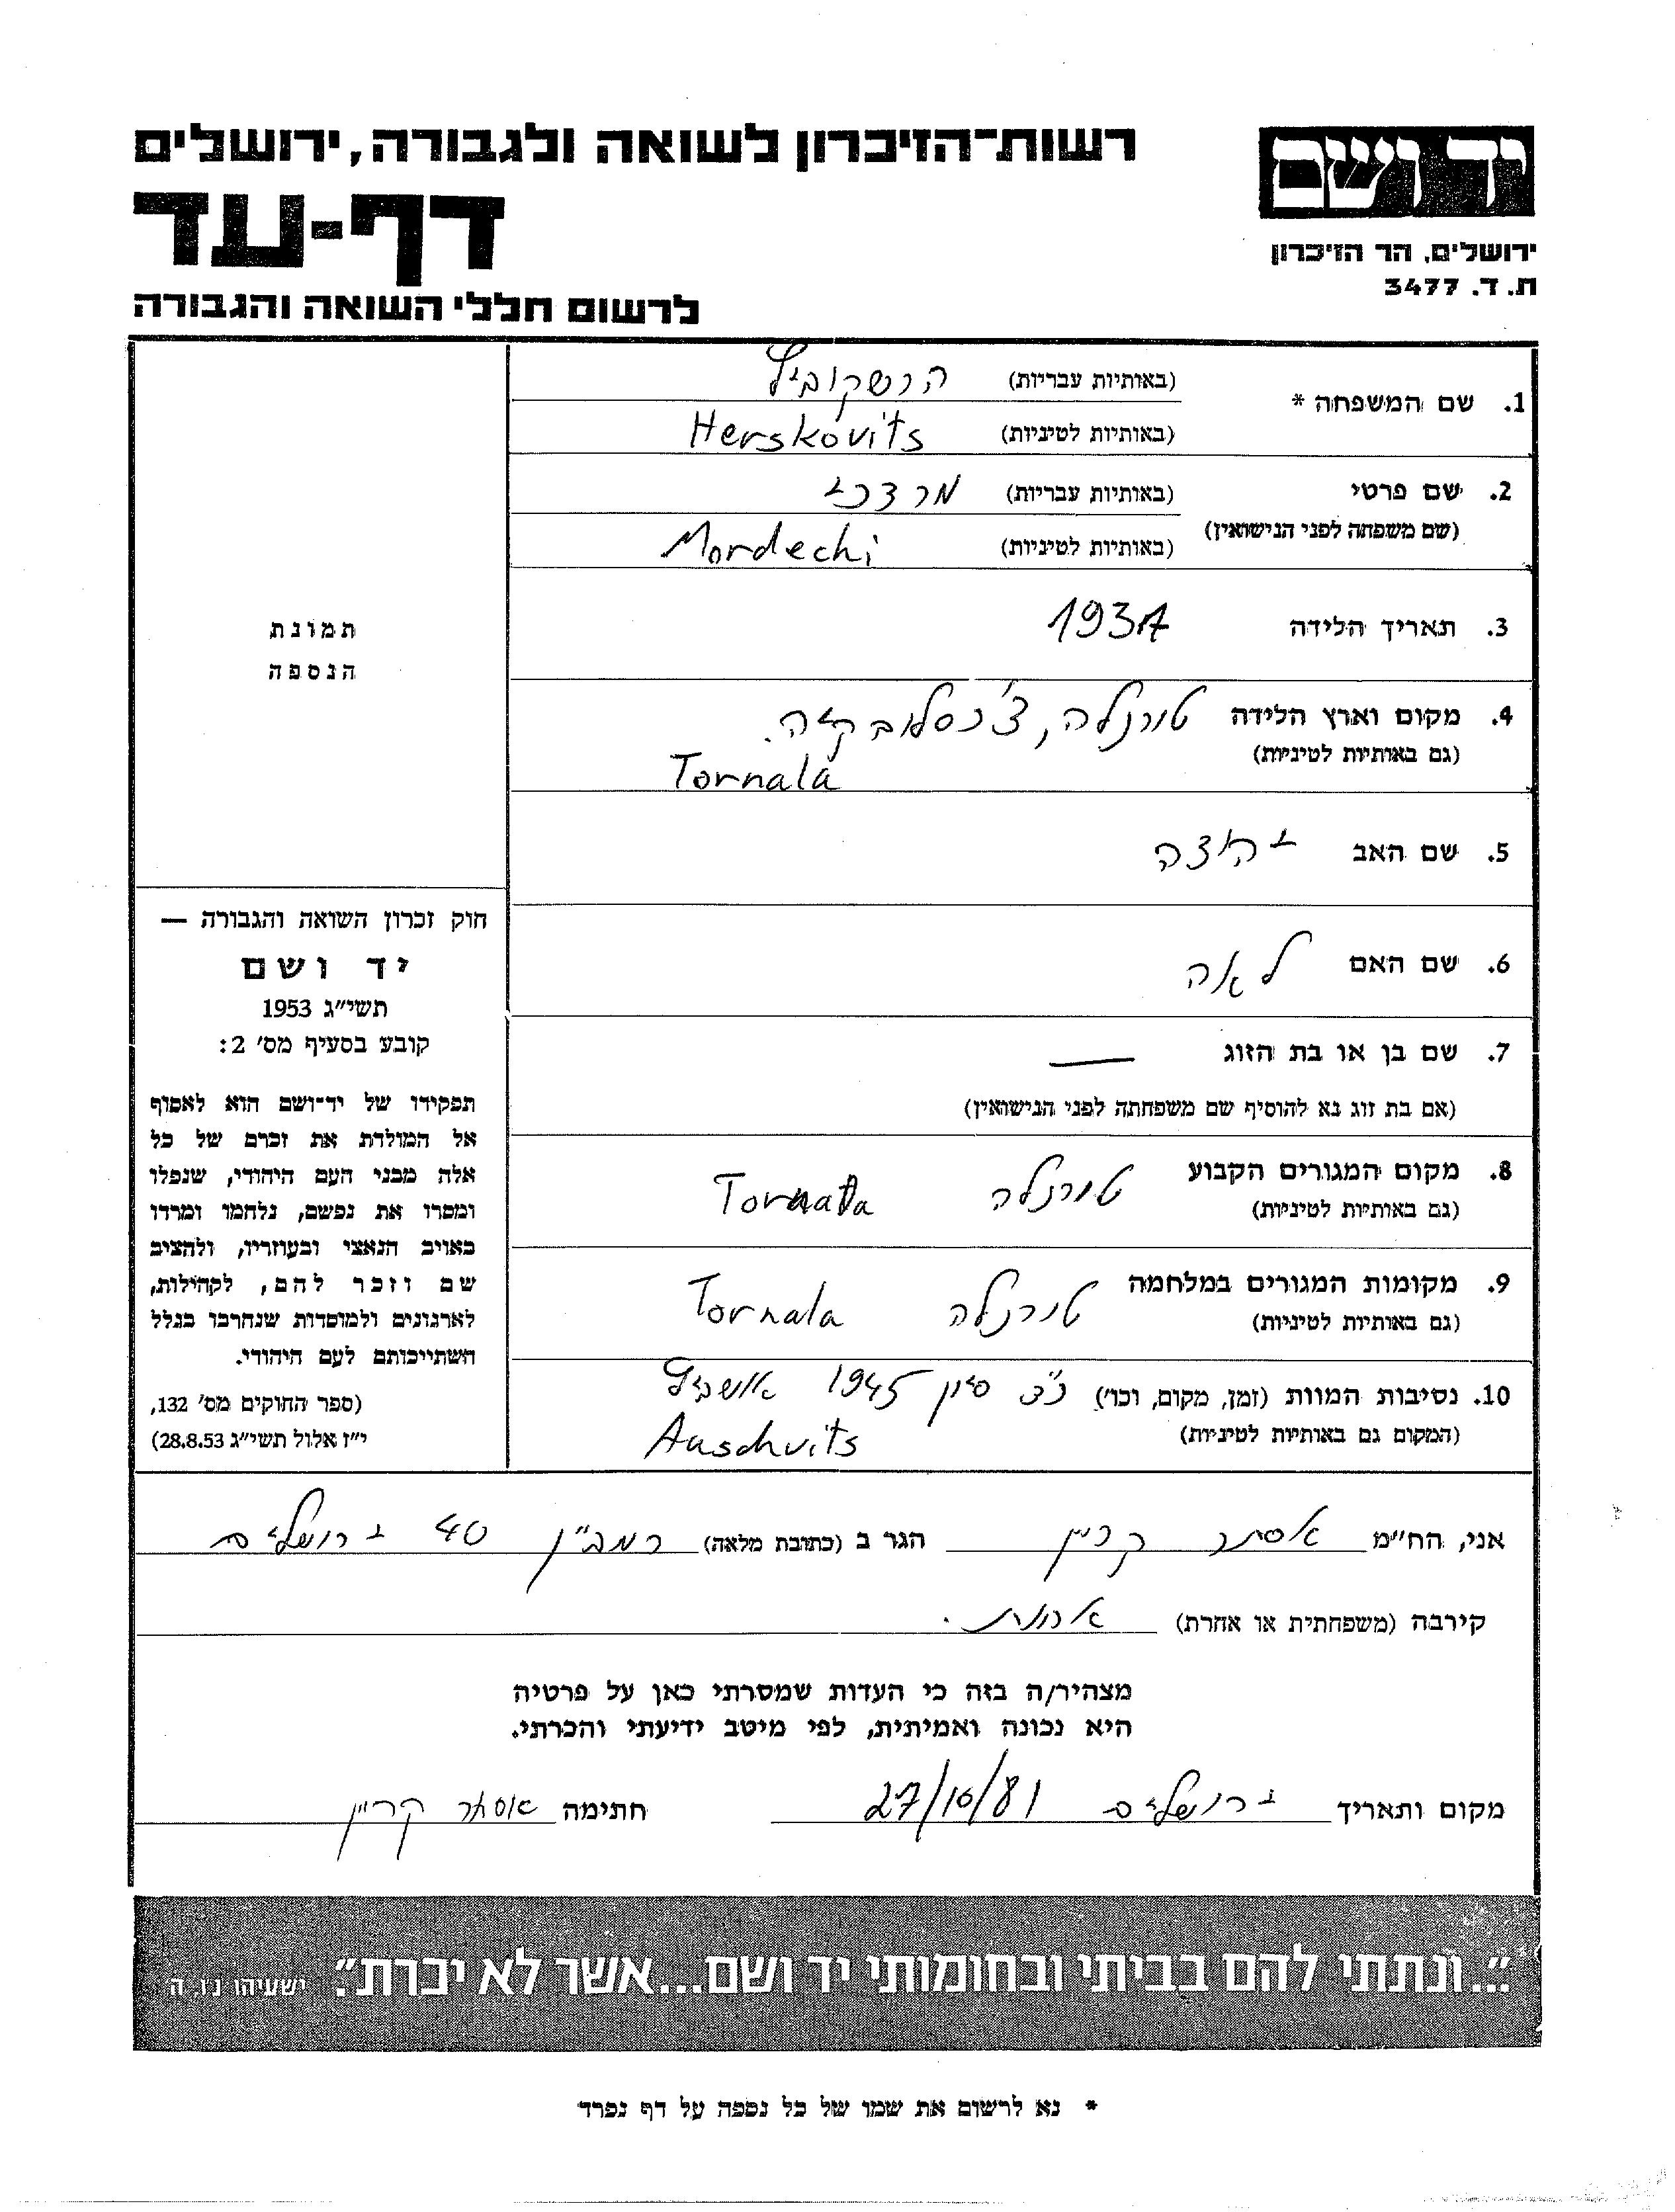 רשות-הזיכרון לשואה ולגבורה, ירושלים
דף-עד
לרשום חללי השואה והגבורה
יד ושם
ירושלים, הר הזיכרון
ת. ד. 3477
1. שם המשפחה * (באותיות עבריות) הרשקוביץ
(באותיות לטיניות) Herskovits
2. שם פרטי (באותיות עבריות) מרדכי
(שם משפחה לפני הנישואין) (באותיות לטיניות) Mordechi
3. תאריך הלידה
4. מקום וארץ הלידה טורנלה, צ'כסלובקיה.
(גם באותיות לטיניות) Tornala
5. שם האב
6. שם האם לאה
7. שם בן או בת הזוג —
(אם בת זוג נא להוסיף שם משפחתה לפני הנישואין)
8. מקום המגורים הקבוע טורנלה Tornala
(גם באותיות לטיניות)
9. מקומות המגורים במלחמה טורנלה Tornala
(גם באותיות לטיניות)
10. נסיבות המוות (זמן, מקום, וכו') סיון 1945 אושביץ
(המקום גם באותיות לטיניות) Auschvits
תמונת
הנספה
חוק זכרון השואה והגבורה —
יד ושם
תשי"ג 1953
קובע בסעיף מס' 2:
תפקידו של יד-ושם הוא לאסוף
אל המולדת את זכרם של כל
אלה מבני העם היהודי, שנפלו
ומסרו את נפשם, נלחמו ומרדו
באויב הנאצי ובעוזריו, ולהציב
שם וזכר להם, לקהילות,
לארגונים ולמוסדות שנחרבו בגלל
השתייכותם לעם היהודי.
(ספר החוקים מס' 132,
י"ז אלול תשי"ג 28.8.53)
אני, הח"מ אסתר קריין הגר ב (כתובת מלאה) רמב"ן 40 ירושלים
קירבה (משפחתית או אחרת) אחות.
מצהיר/ה בזה כי העדות שמסרתי כאן על פרטיה
היא נכונה ואמיתית, לפי מיטב ידיעתי והכרתי.
מקום ותאריך ירושלים 27/10/81 חתימה אסתר קריין
"...ונתתי להם בביתי ובחומותי יד ושם...אשר לא יכרת". ישעיהו נו, ה
* נא לרשום את שמו של כל נספה על דף נפרד